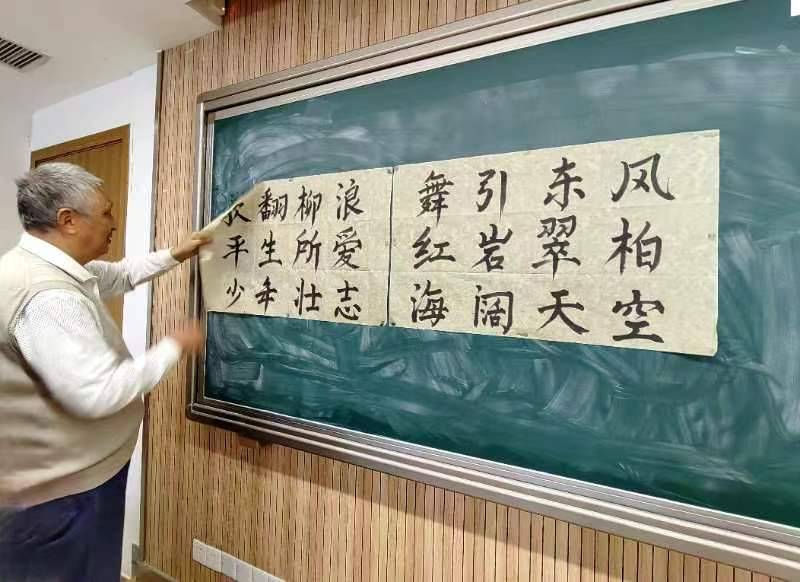 翻柳浪 舞引东风
平生所爱 红岩翠柏
少年壮志 海阔天空